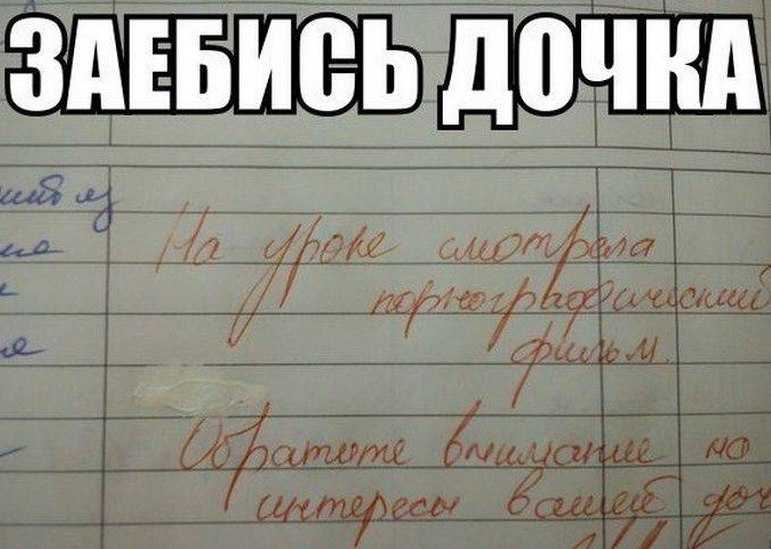 ЗАЕБИСЬ ДОЧКА
На уроке смотрела
порнографический
фильм.
Обратите внимание на
интересы вашей доч